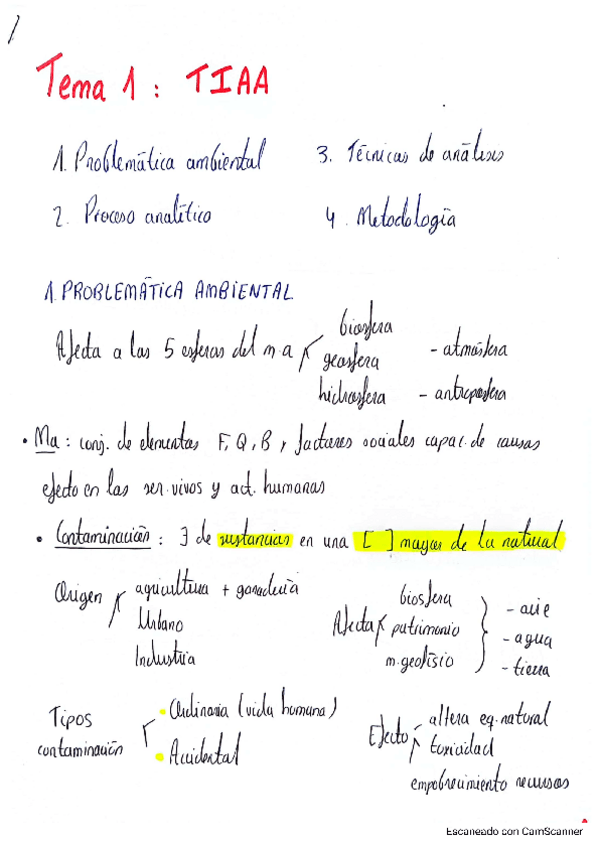 Tema 1 : TIAA
1. Problemática ambiental
3. Técnicas de análisis
2. Proceso analítico
4. Metodología
1. PROBLEMÁTICA AMBIENTAL
Afecta a las 5 esferas del m.a
biosfera
geosfera
hidrosfera
- atmósfera
- antroposfera
• Ma : conj. de elementos F, Q, B y factores sociales capac. de causas
efecto en las ser. vivos y act. humanas
• Contaminación : ∃ de sustancias en una [ ] mayor de la natural
Origen
agricultura + ganadería
Urbano
Industria
Afecta
biosfera
patrimonio
m. geofísio
- aire
- agua
- tierra
Tipos
contaminación
• Ordinaria (vida humana)
• Accidental
Efecto
altera eq. natural
toxicidad
empobrecimiento recursos
Escaneado con CamScanner